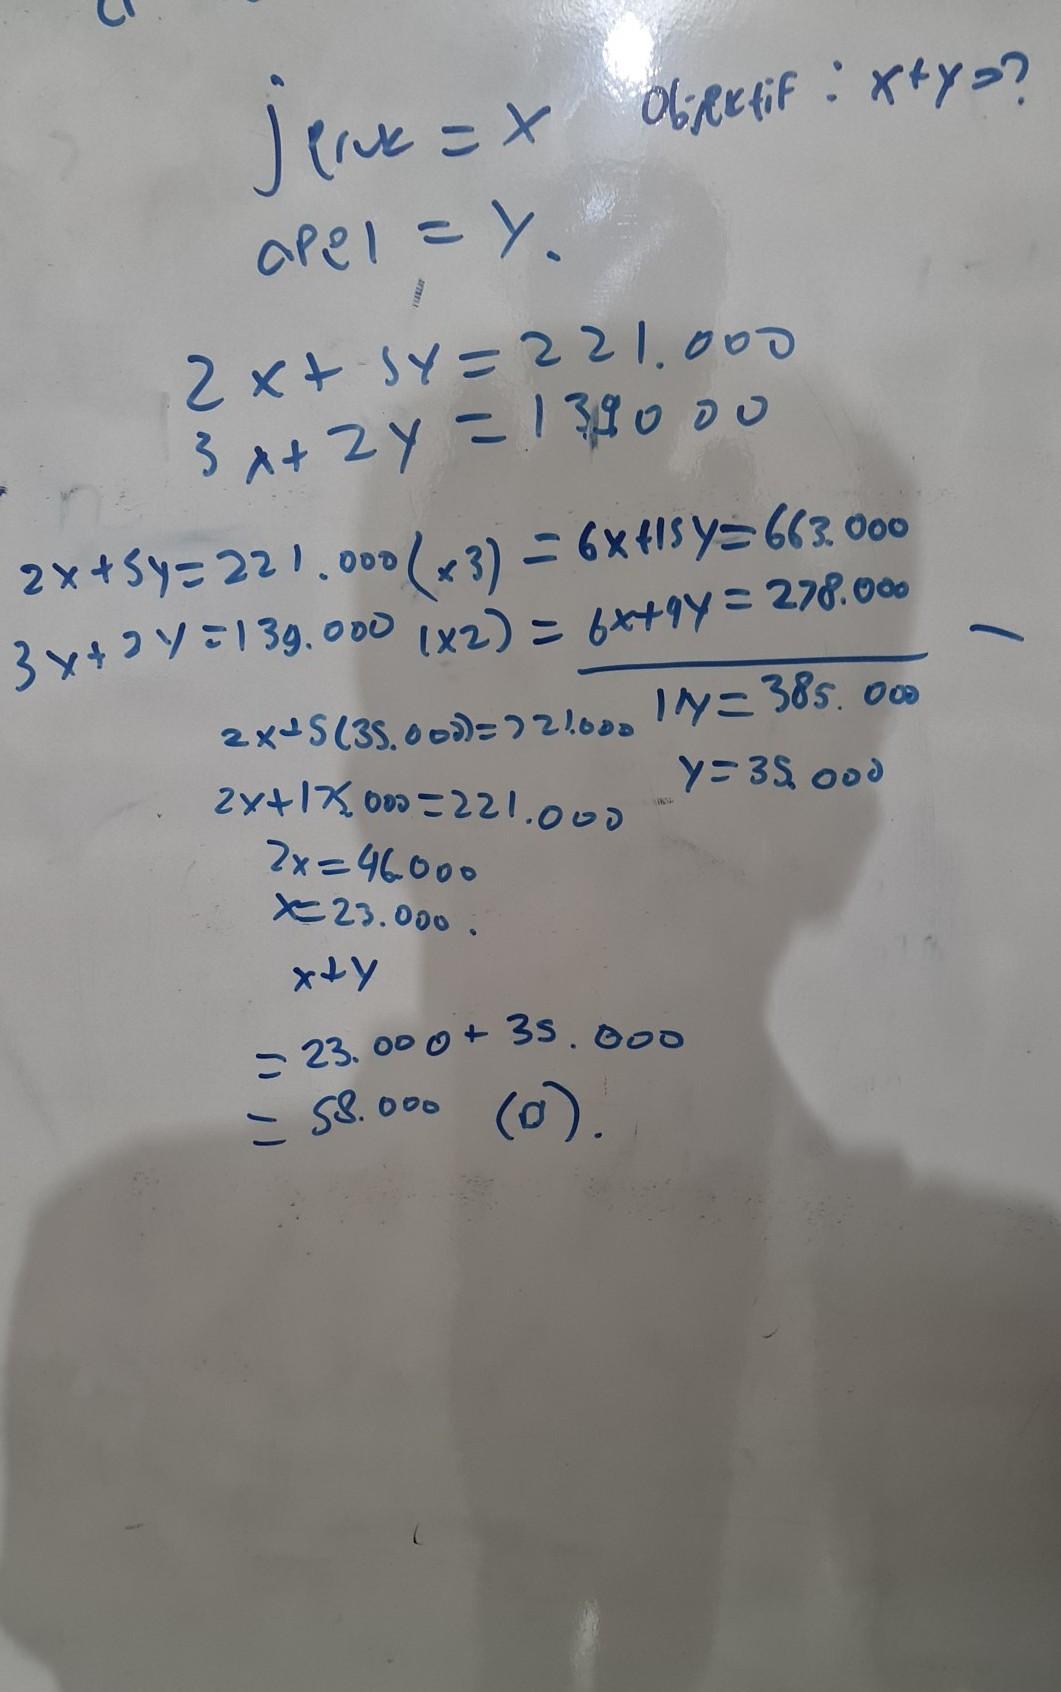 jeruk = x
Objektif : x+y=?
apel = y.
2x+5y=221.000
3x+2y=139000
2x+5y=221.000(x3) = 6x+15y=663.000
3x+2y=139.000 (x2) = 6x+4y=278.000 -
11y=385.000
2x+5(35.000)=221.000
y=35.000
2x+175.000=221.000
2x=46.000
x=23.000.
x+y
= 23.000+35.000
= 58.000 (D).